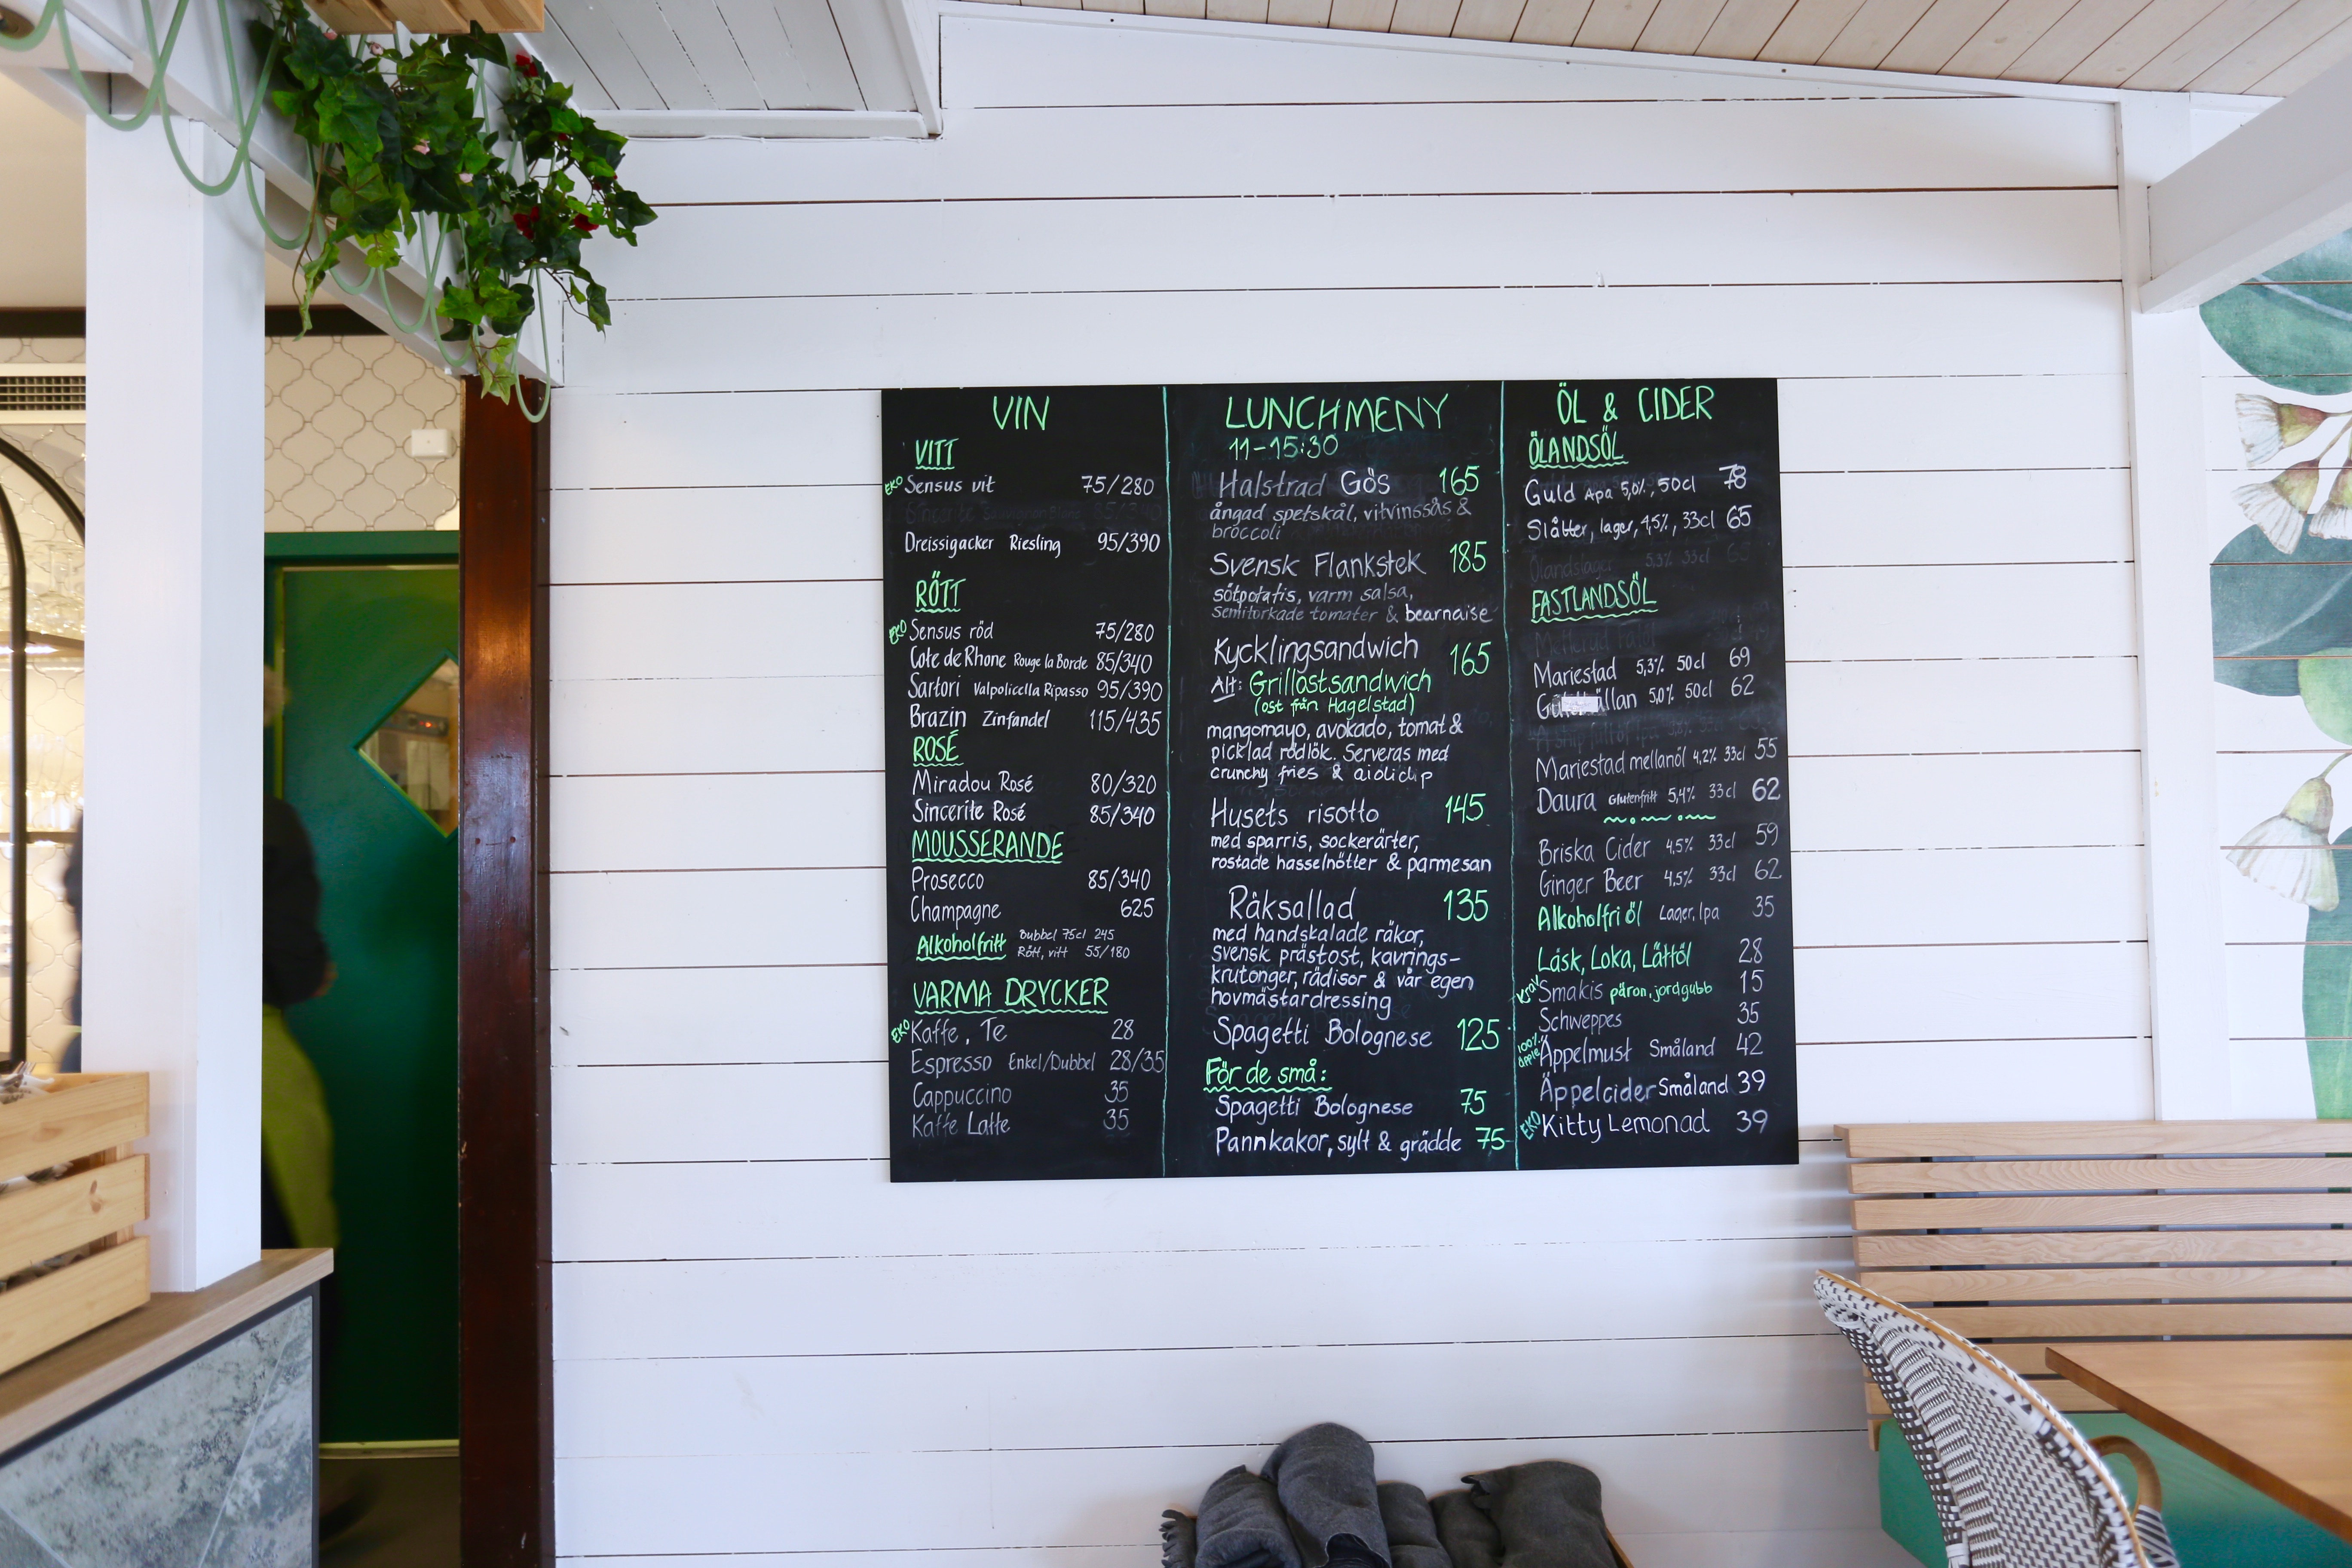 VIN
VITT
EKO Sensus vit 75/280
Dreissigacker Riesling 95/390
RÖTT
EKO Sensus röd 75/280
Cote de Rhone Rouge la Borde 85/340
Sartori Valpolicella Ripasso 95/390
Brazin Zinfandel 115/435
ROSÉ
Miradou Rosé 80/320
Sincerite Rosé 85/340
MOUSSERANDE
Prosecco 85/340
Champagne 625
Alkoholfritt Bubbel 75cl 245
Rött, vitt 55/180
VARMA DRYCKER
EKO Kaffe, Te 28
Espresso Enkel/Dubbel 28/35
Cappuccino 35
Kaffe Latte 35
LUNCHMENY
11-15:30
Halstrad Gös 165
ångad spetskål, vitvinssås &
broccoli
Svensk Flankstek 185
sötpotatis, varm salsa,
semitorkade tomater & bearnaise
Kycklingsandwich 165
Alt: Grillostsandwich
(ost från Hagelstad)
mangomayo, avokado, tomat &
picklad rödlök. Serveras med
crunchy fries & aiolidip
Husets risotto 145
med sparris, sockerärter,
rostade hasselnötter & parmesan
Räksallad 135
med handskalade räkor,
svensk prästost, kavrings-
krutonger, rädisor & vår egen
hovmästardressing
Spagetti Bolognese 125
För de små:
Spagetti Bolognese 75
Pannkakor, sylt & grädde 75
ÖL & CIDER
ÖLANDSÖL
Guld Apa 5,0%, 50cl 78
Slåtter, lager, 4,5%, 33cl 65
Ölandslager 5,3% 33cl
FASTLANDSÖL
Mariestad 5,3% 50cl 69
5,0% 50cl 62
Mariestad mellanöl 4,2% 33cl 55
Daura Glutenfritt 5,4% 33cl 62
Briska Cider 4,5% 33cl 59
Ginger Beer 4,5% 33cl 62
Alkoholfri öl Lager, Ipa 35
Läsk, Loka, Lättöl 28
Krav Smakis päron, jordgubb 15
Schweppes 35
100% äpple Äppelmust Småland 42
Äppelcider Småland 39
EKO Kitty Lemonad 39